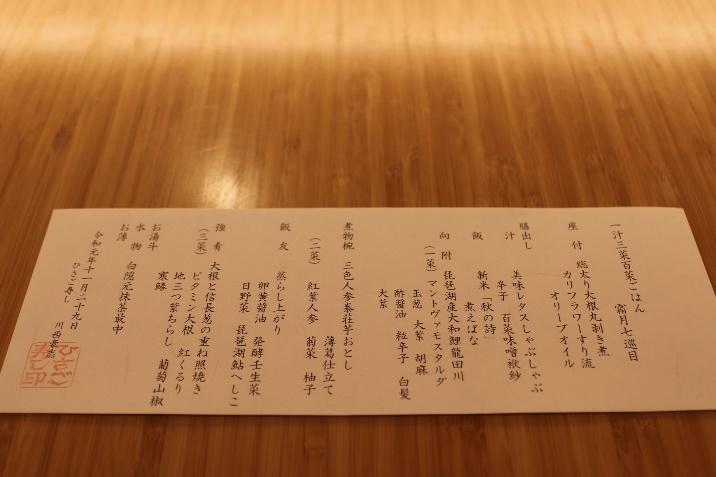 一汁三菜百菜ごはん 霜月七巡目
座付 総太り大根丸剥き煮
カリフラワーすり流
オリーブオイル
膳出し
汁 美味レタスしゃぶしゃぶ
辛子 百菜味噌袱紗
飯 新米「秋の詩」
煮えばな
向附 琵琶湖産大和鯉龍田川
（一菜）マントヴァモスタルダ
玉葱 大葉 胡麻
酢醤油 粒辛子 白髪
大葉
煮物椀 三色人参素荘芋おとし
薄葛仕立て
（二菜） 紅葉人参 菊菜 柚子
飯友 蒸らし上がり
卵黄醤油 発酵壬生菜
日野菜 琵琶湖鮎へしこ
強肴 大根と信長葱の重ね照焼き
（三菜） ビタミン大根 紅くるり
地三つ葉ちらし 葡萄山椒
寒鰆
お湯斗
水物 白隠元抹茶最中
お薄
令和元年十一月二十九日
ひさご寿し
川西豪志
ひさご寿し印